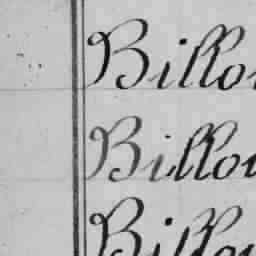 Billou
Billou
Billou